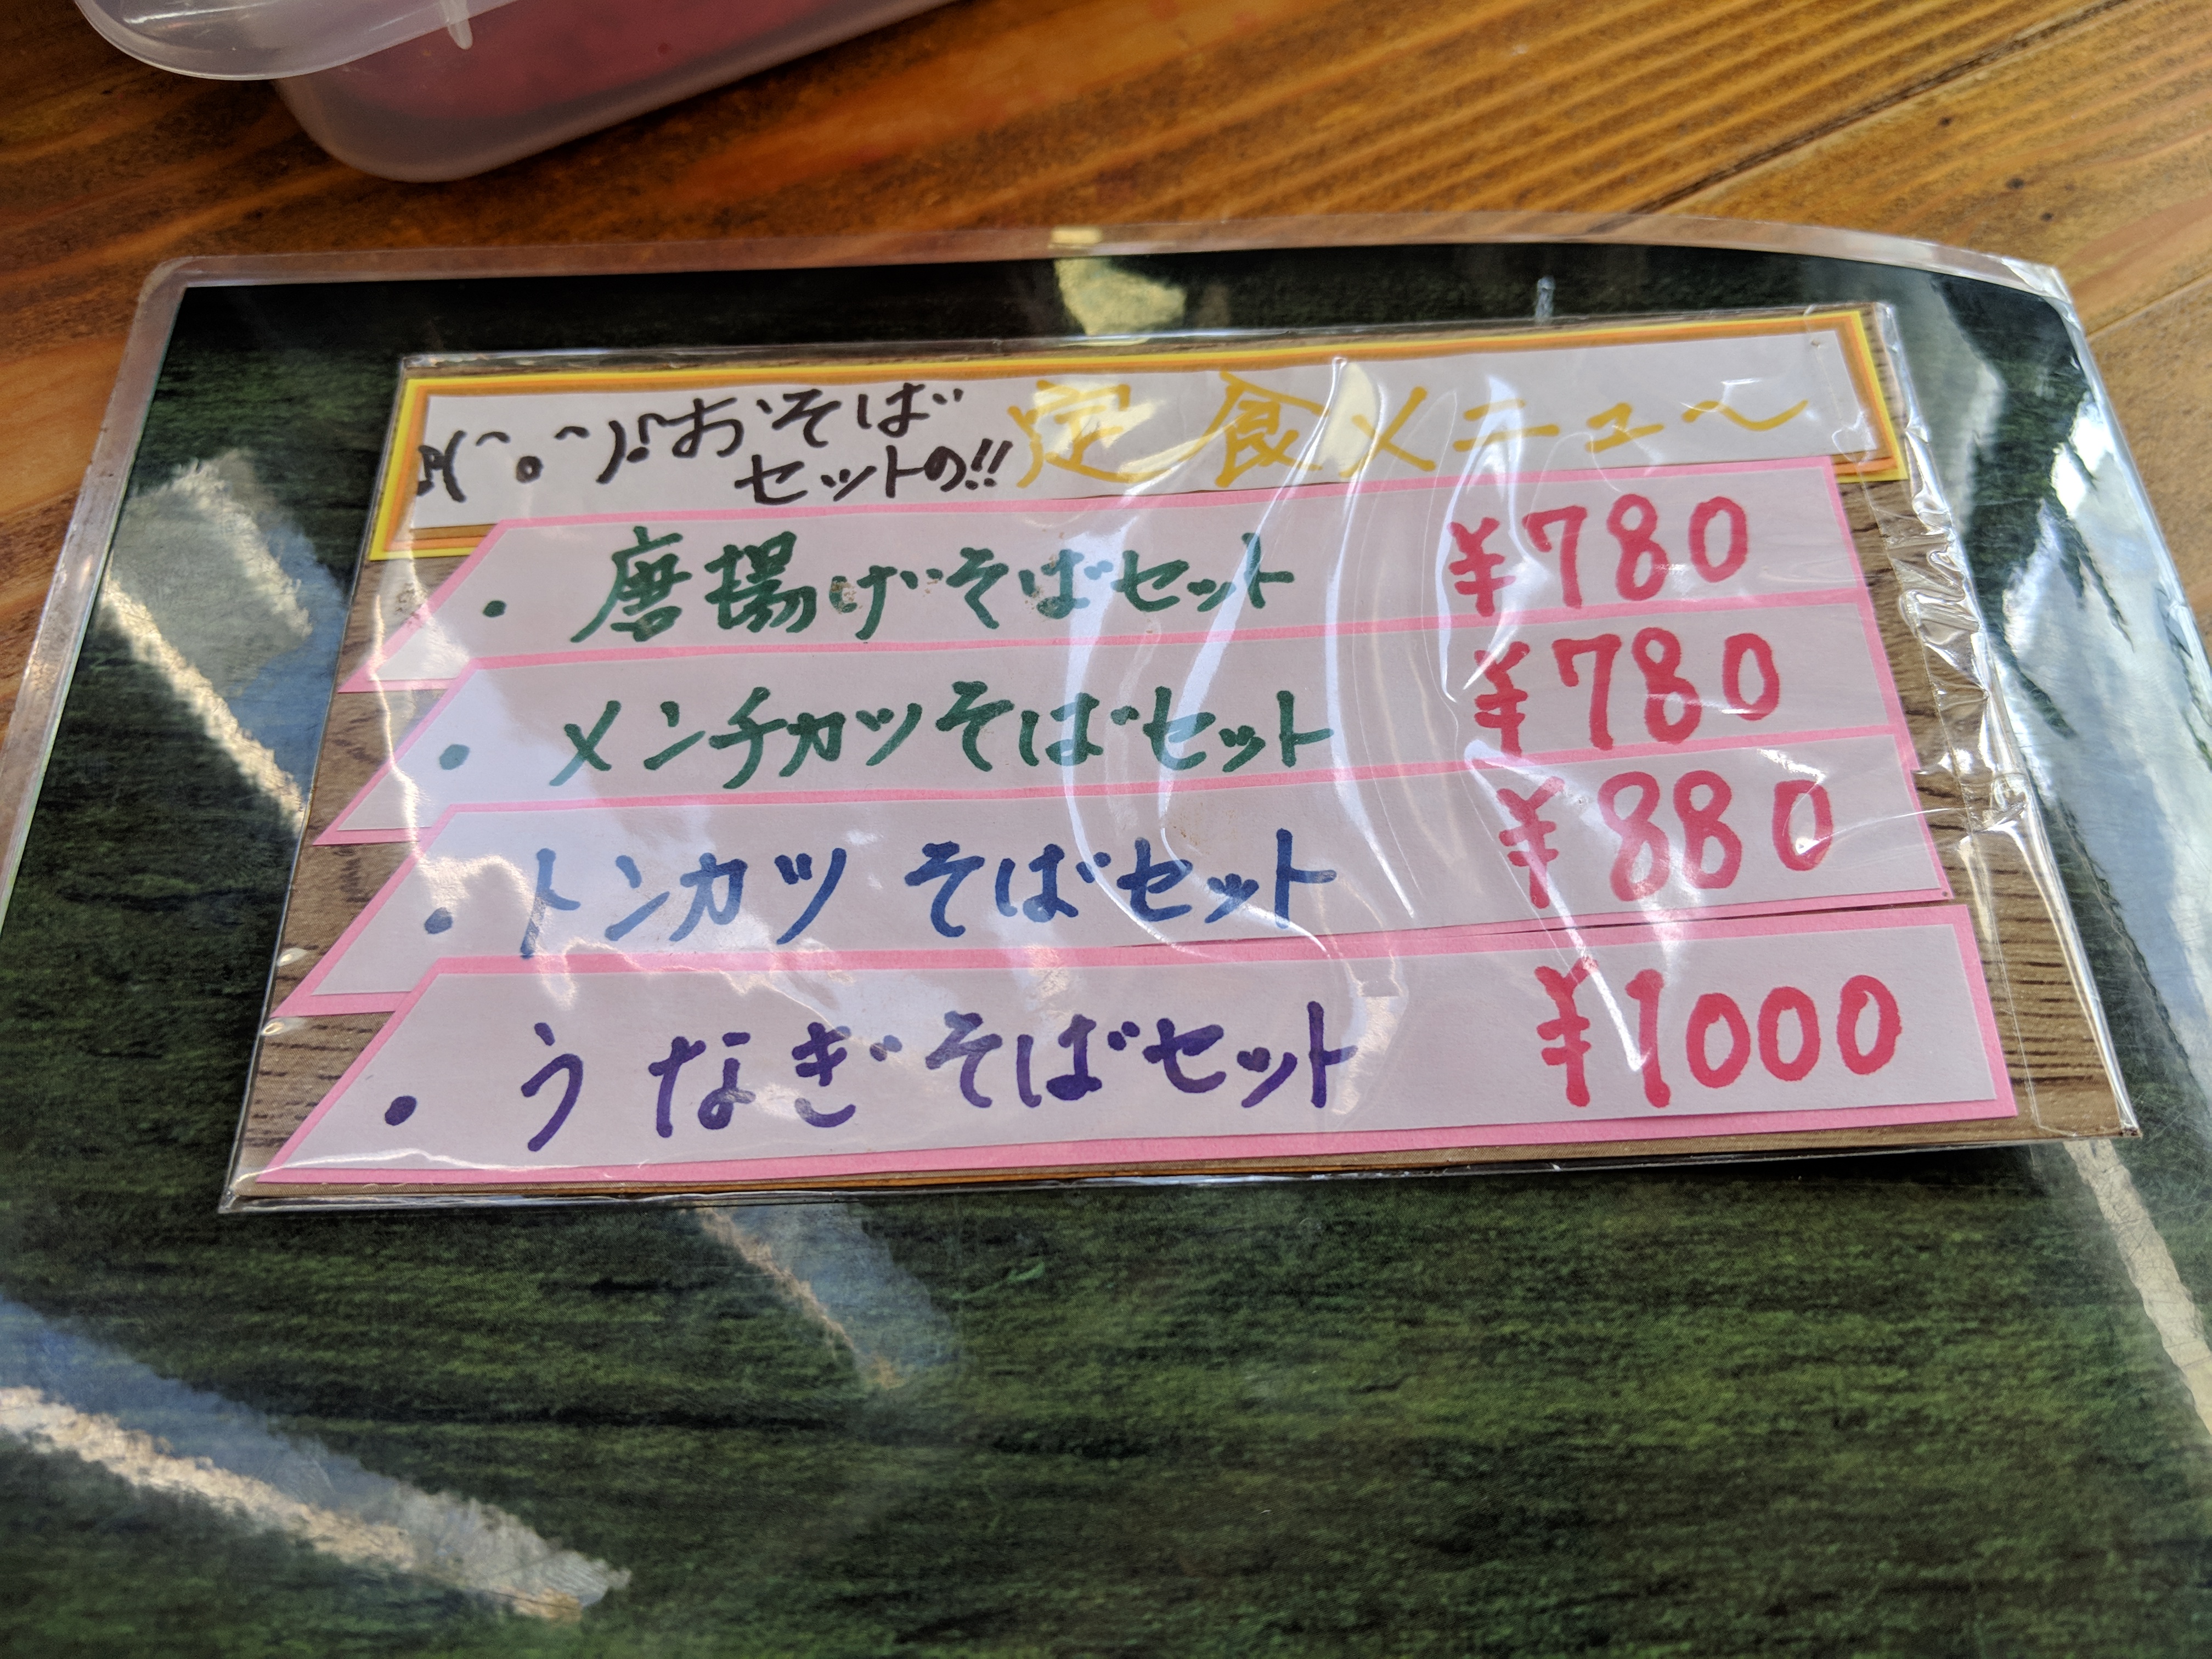 ♪(^o^)♪おそば
セットの!!定食メニュ～
・唐揚げそばセット ¥780
・メンチカツそばセット ¥780
・トンカツ そばセット ¥880
・うなぎそばセット ¥1000